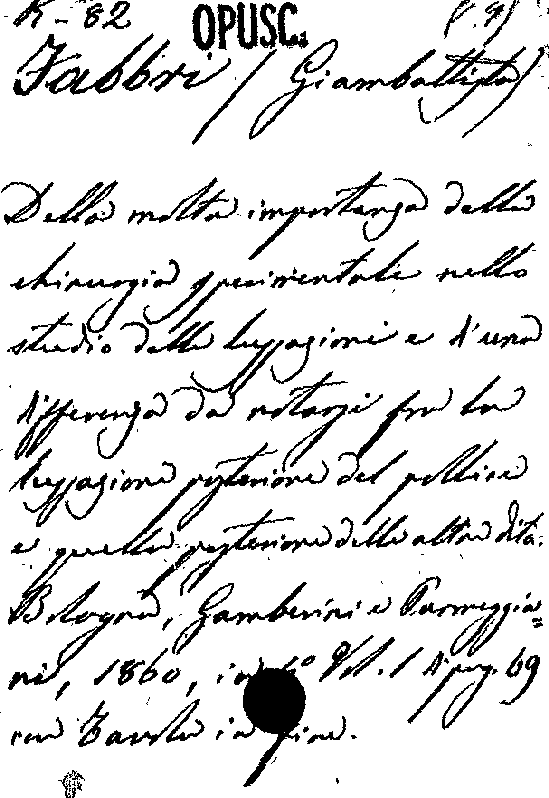 R-82 OPUSC.
Fabbri (Giambattista)
Della molta importanza della
chirurgia sperimentale nello
studio delle lussazioni e d'una
differenza da notarsi fra la
lussazione posteriore del pollice
e quella posteriore delle altre dita.
Bologna, Gamberini e Parmeggia=
ni, 1860, in 4° Vol. 1 di pag. 69
con Tavole in fine.